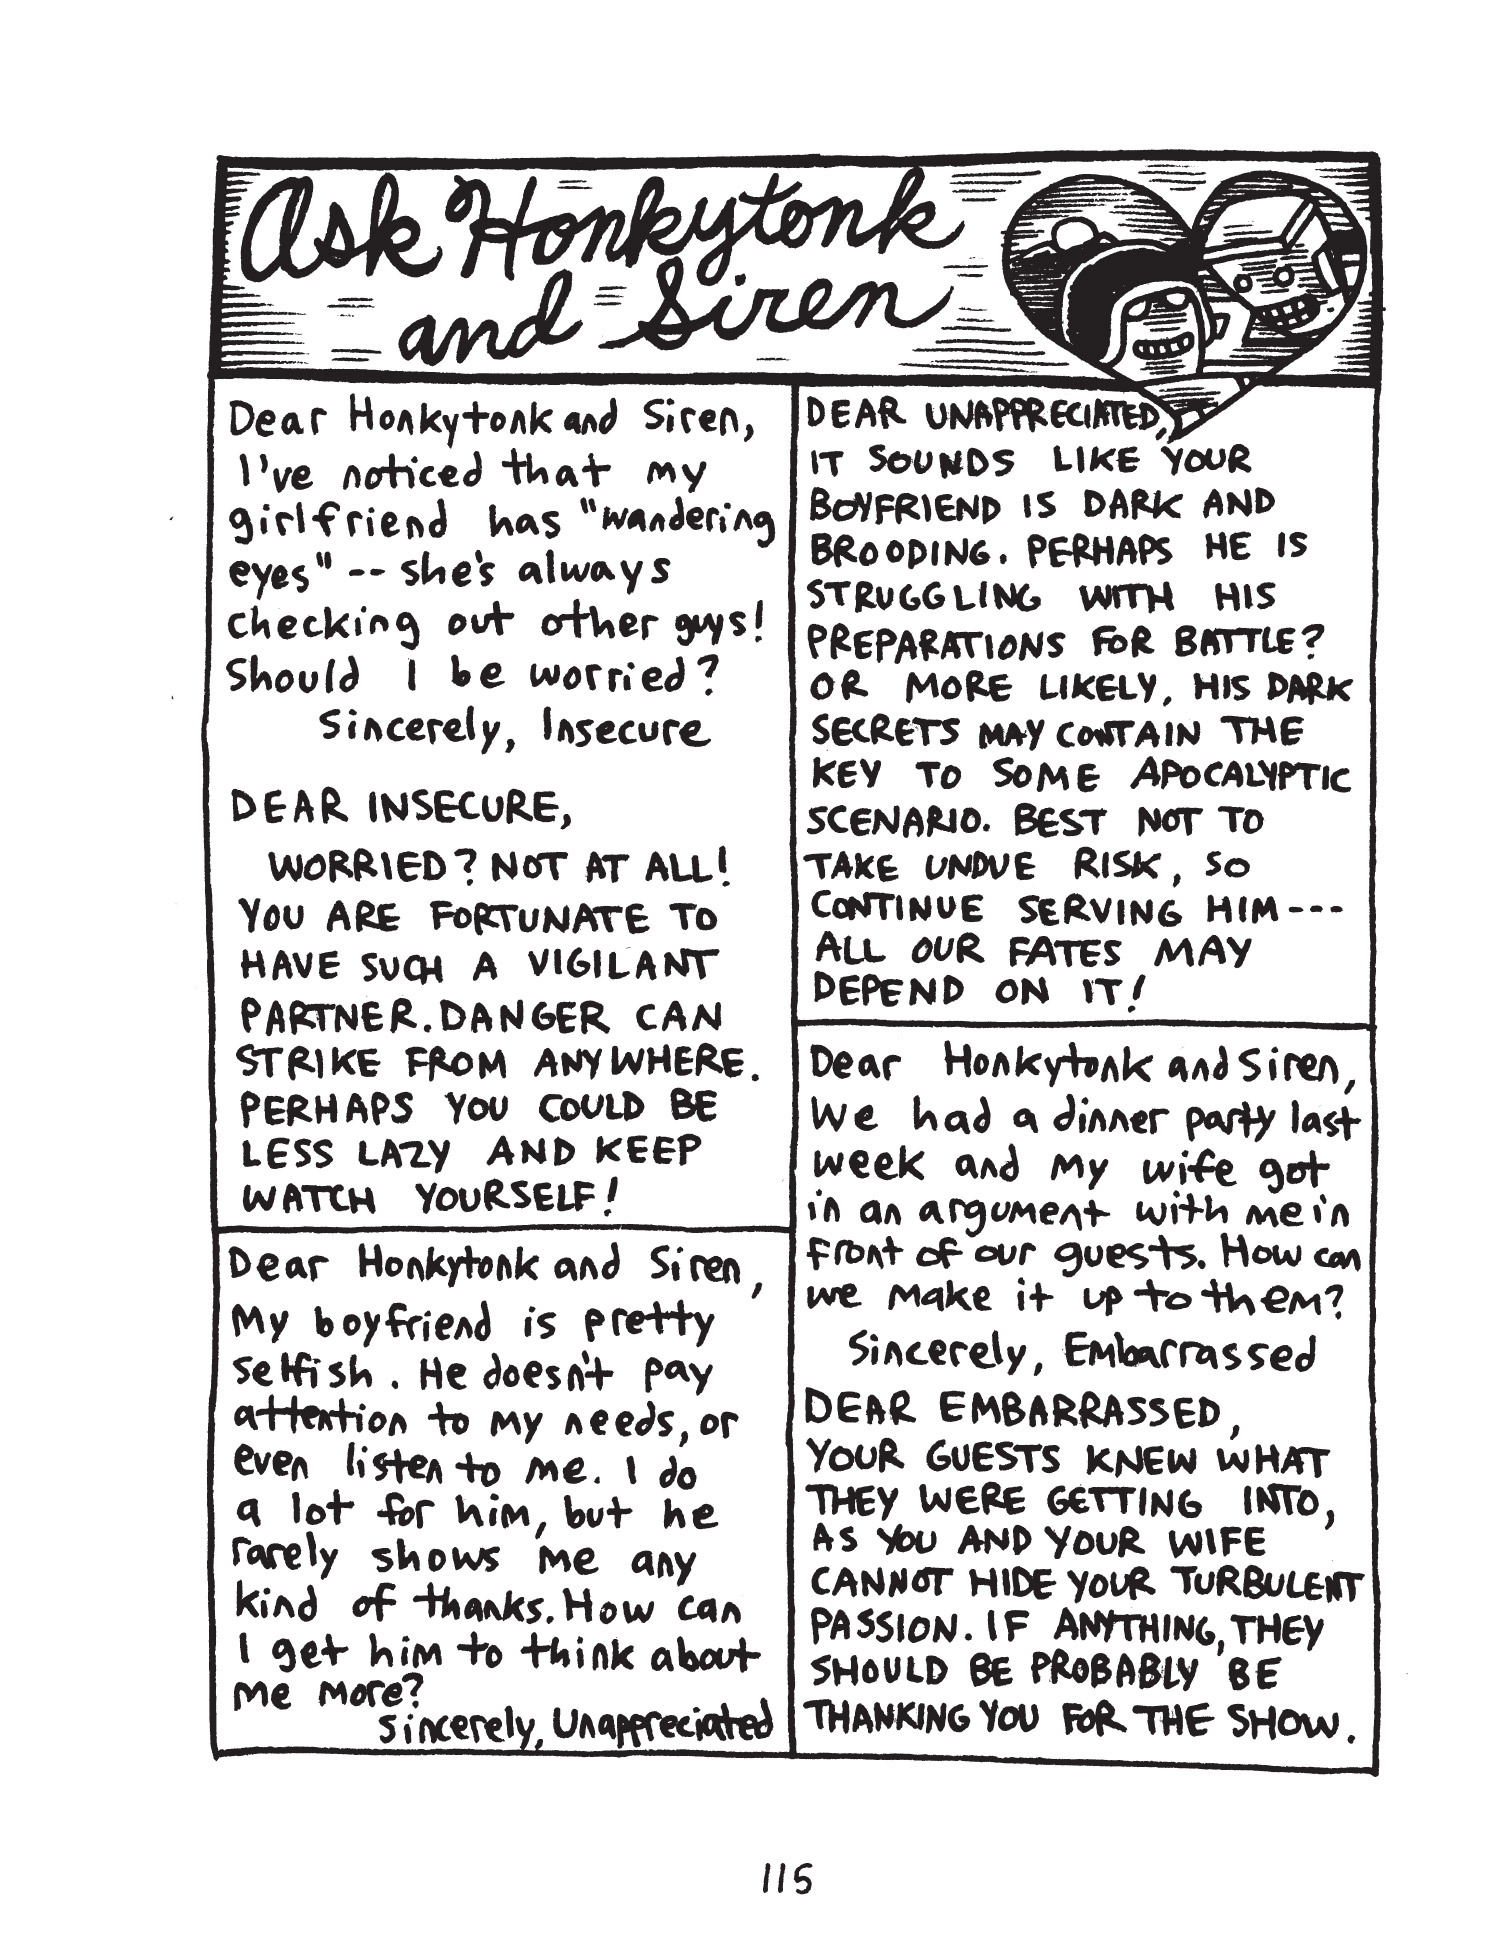 Ask Honkytonk
and Siren
Dear Honkytonk and Siren,
I've noticed that my
girlfriend has "wandering
eyes" -- she's always
checking out other guys!
Should I be worried?
Sincerely, Insecure
DEAR INSECURE,
WORRIED? NOT AT ALL!
YOU ARE FORTUNATE TO
HAVE SUCH A VIGILANT
PARTNER. DANGER CAN
STRIKE FROM ANYWHERE.
PERHAPS YOU COULD BE
LESS LAZY AND KEEP
WATCH YOURSELF!
Dear Honkytonk and Siren,
My boyfriend is pretty
selfish. He doesn't pay
attention to my needs, or
even listen to me. I do
a lot for him, but he
rarely shows me any
kind of thanks. How can
I get him to think about
me more?
Sincerely, Unappreciated
DEAR UNAPPRECIATED,
IT SOUNDS LIKE YOUR
BOYFRIEND IS DARK AND
BROODING. PERHAPS HE IS
STRUGGLING WITH HIS
PREPARATIONS FOR BATTLE?
OR MORE LIKELY, HIS DARK
SECRETS MAY CONTAIN THE
KEY TO SOME APOCALYPTIC
SCENARIO. BEST NOT TO
TAKE UNDUE RISK, SO
CONTINUE SERVING HIM---
ALL OUR FATES MAY
DEPEND ON IT!
Dear Honkytonk and Siren,
We had a dinner party last
week and my wife got
in an argument with me in
front of our guests. How can
we make it up to them?
Sincerely, Embarrassed
DEAR EMBARRASSED,
YOUR GUESTS KNEW WHAT
THEY WERE GETTING INTO,
AS YOU AND YOUR WIFE
CANNOT HIDE YOUR TURBULENT
PASSION. IF ANYTHING, THEY
SHOULD BE PROBABLY BE
THANKING YOU FOR THE SHOW.
115